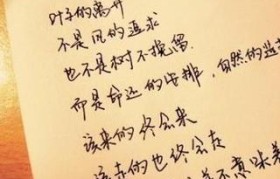 叶子的离开
不是风的追求
也不是树不挽留
而是命运的安排，自然的选
该来的终会来
该走的也终会走
不意味着